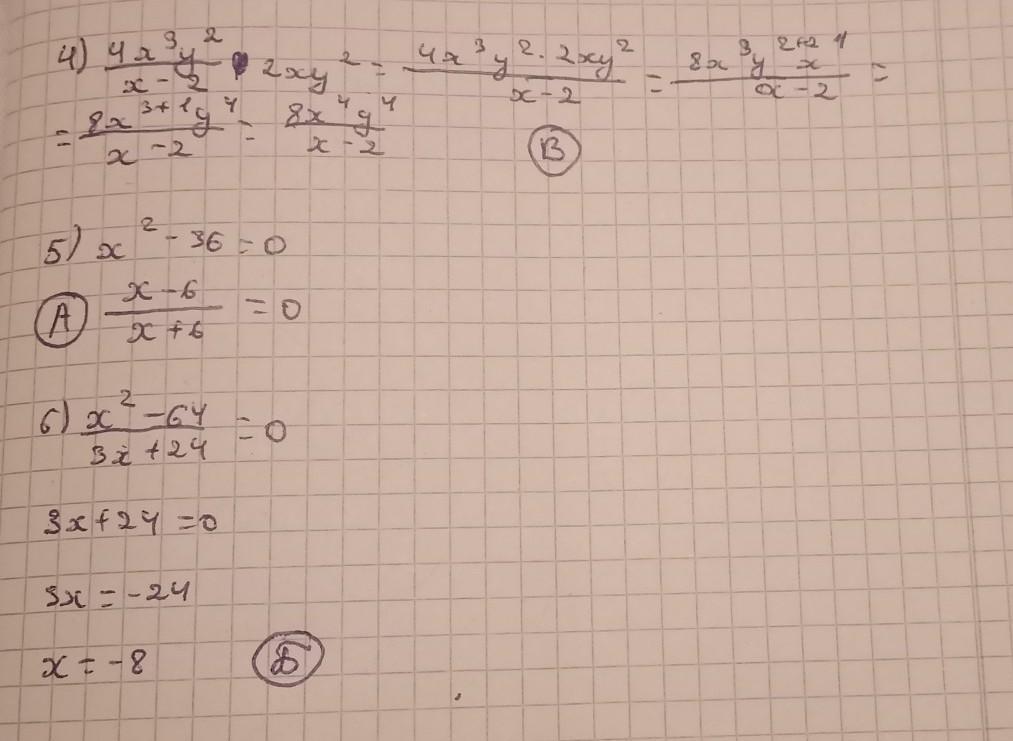 4) \frac{4x^3y^2}{x-2} · 2xy^2 = \frac{4x^3y^2 · 2xy^2}{x-2} = \frac{8x^3y^{2+2}x^1}{x-2} =
= \frac{8x^{3+1}y^4}{x-2} = \frac{8x^4y^4}{x-2} В
5) x^2 - 36 = 0
А \frac{x-6}{x+6} = 0
6) \frac{x^2-64}{3x+24} = 0
3x + 24 = 0
3x = -24
x = -8 Б